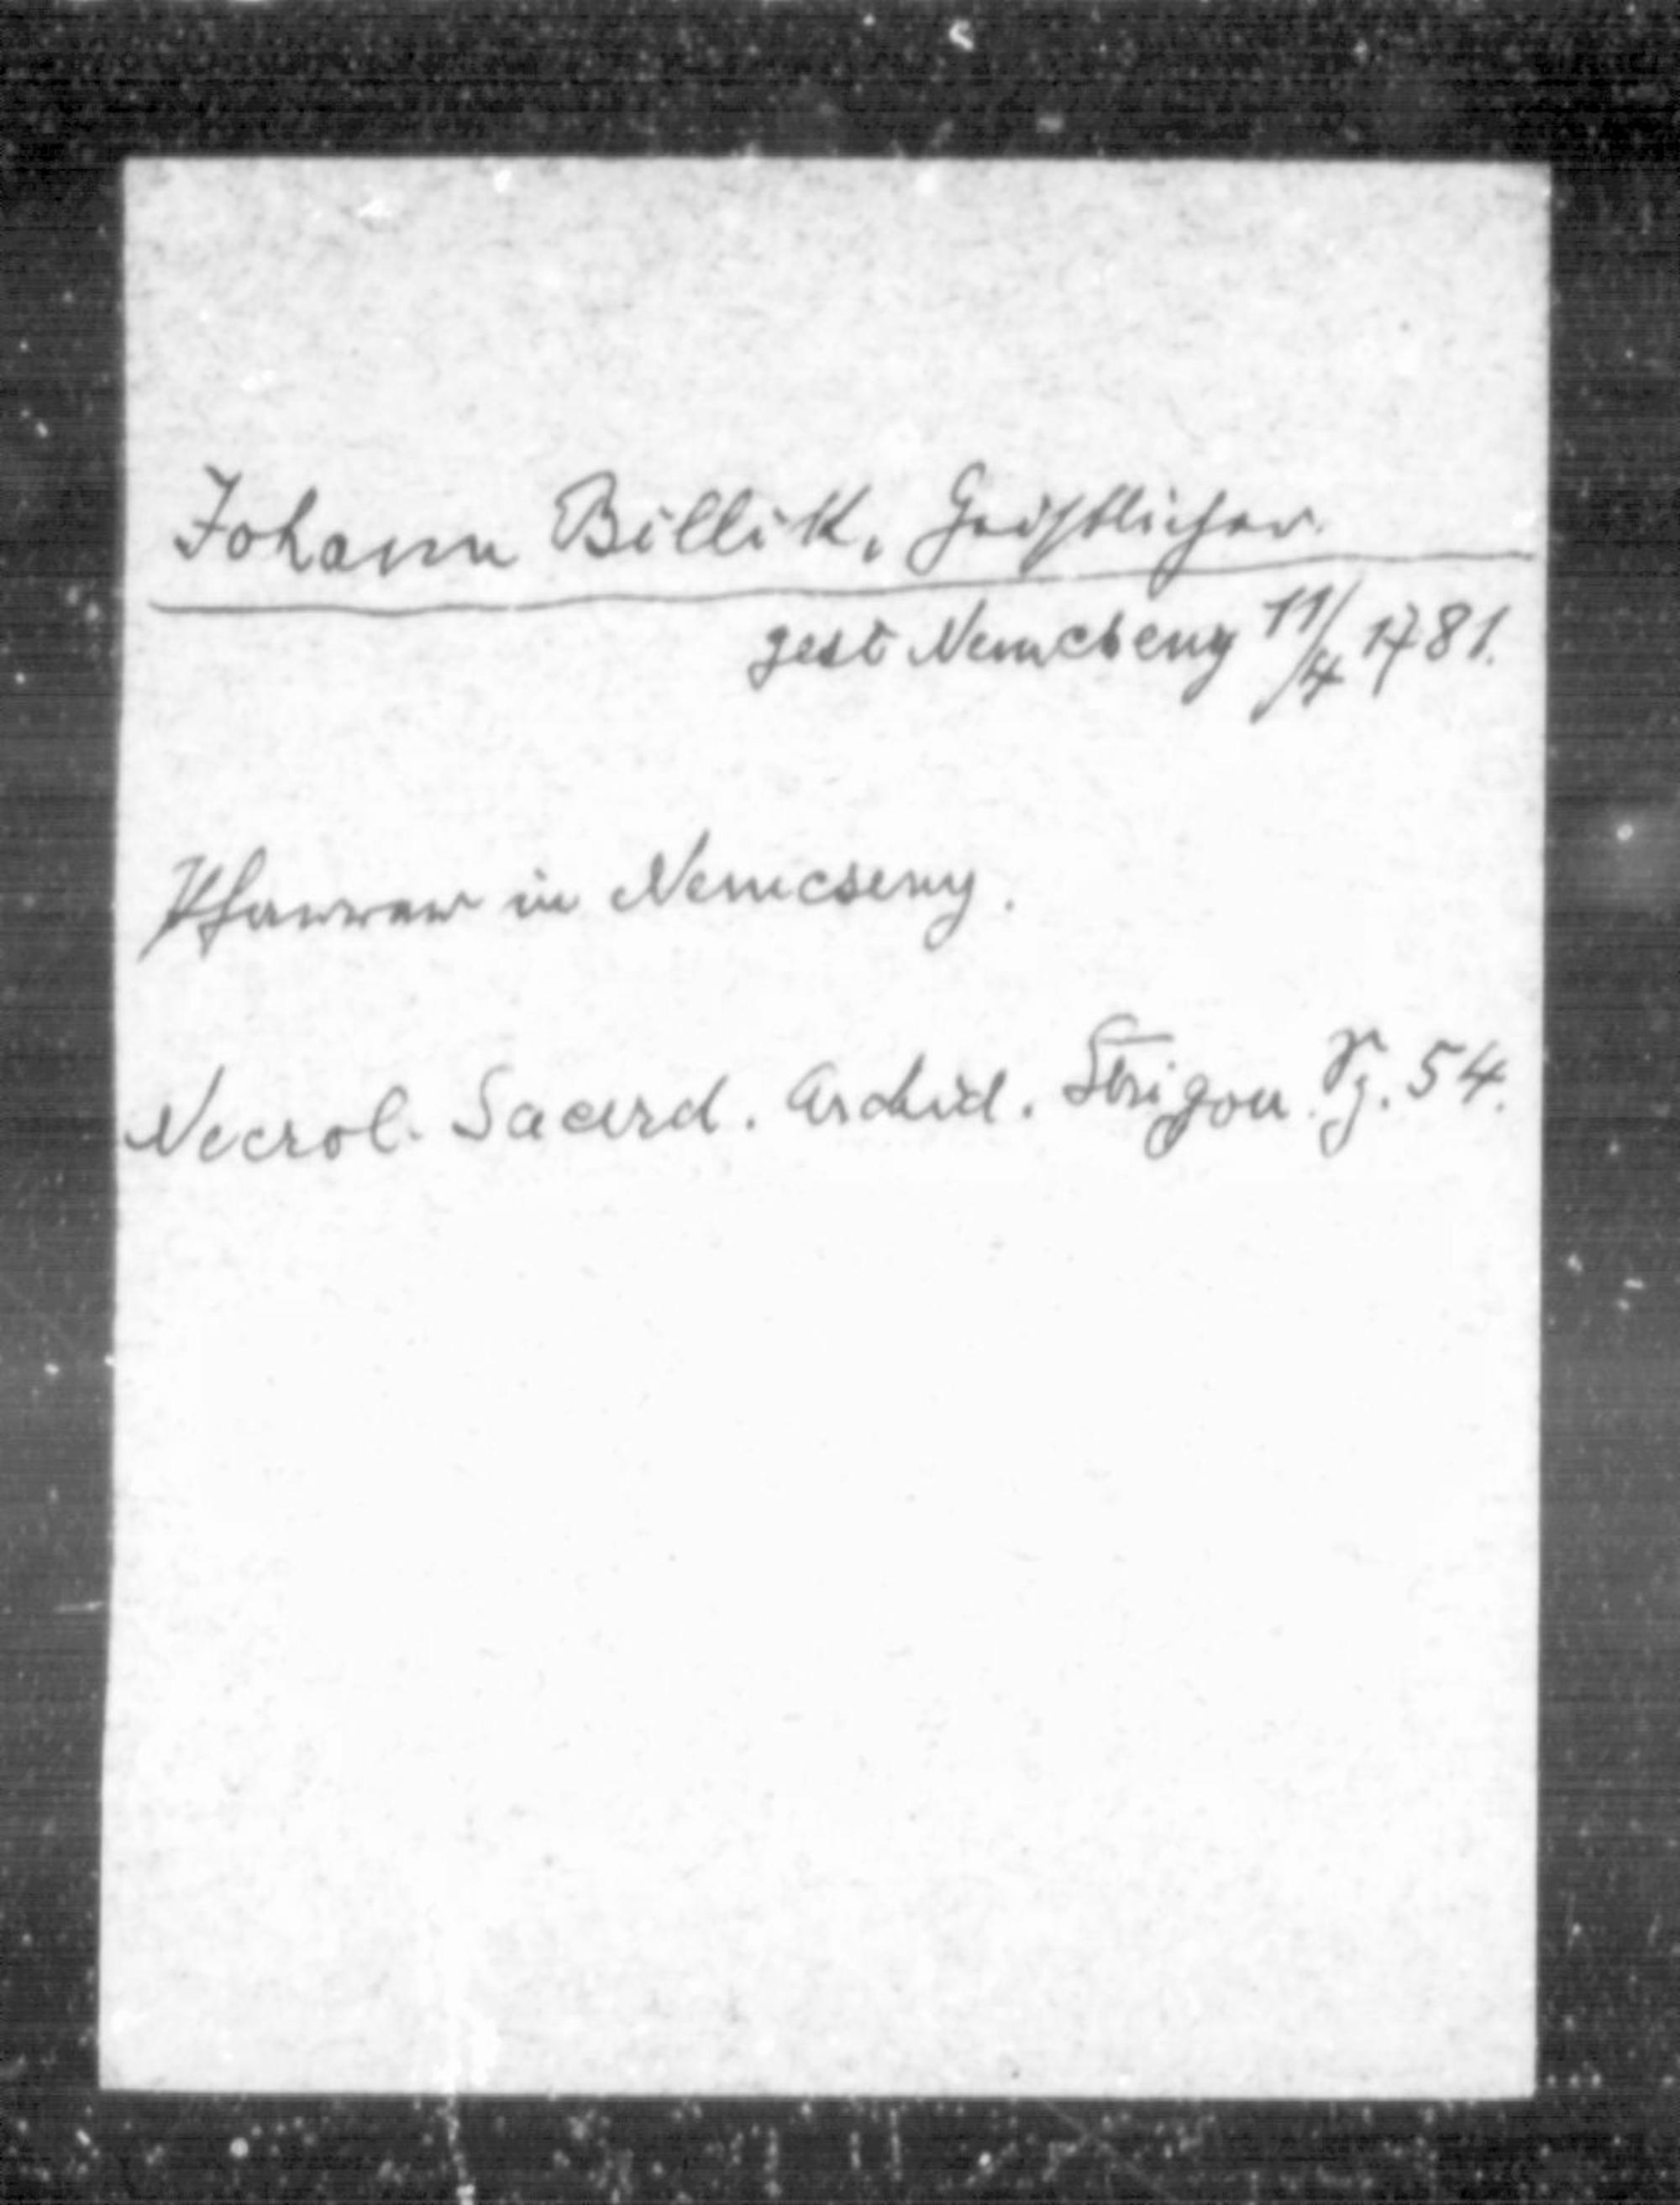 Johann Billik, Geistlicher.
gest Nemcseny 11/4 1781.
Pfarrer in Nemcseny.
Necrol. Sacerd. Archid. Strigon. Pg. 54.